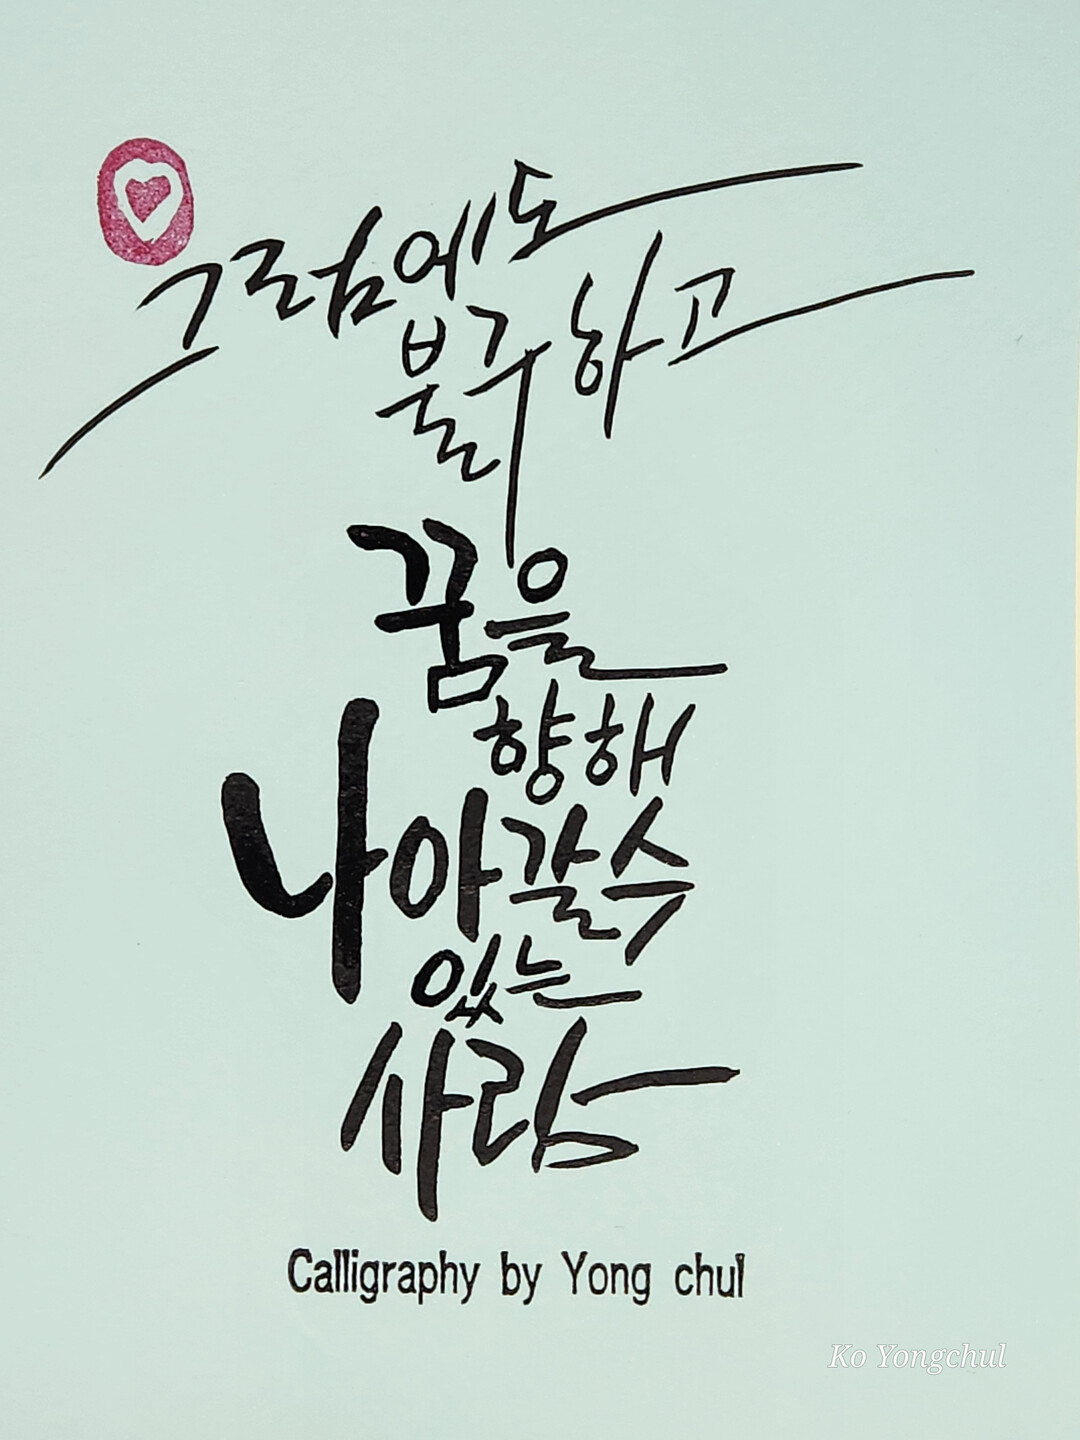 그림에도
불구하고
꿈을
향해
나아갈수
있는
사람
Calligraphy by Yong chul
Ko Yongchul